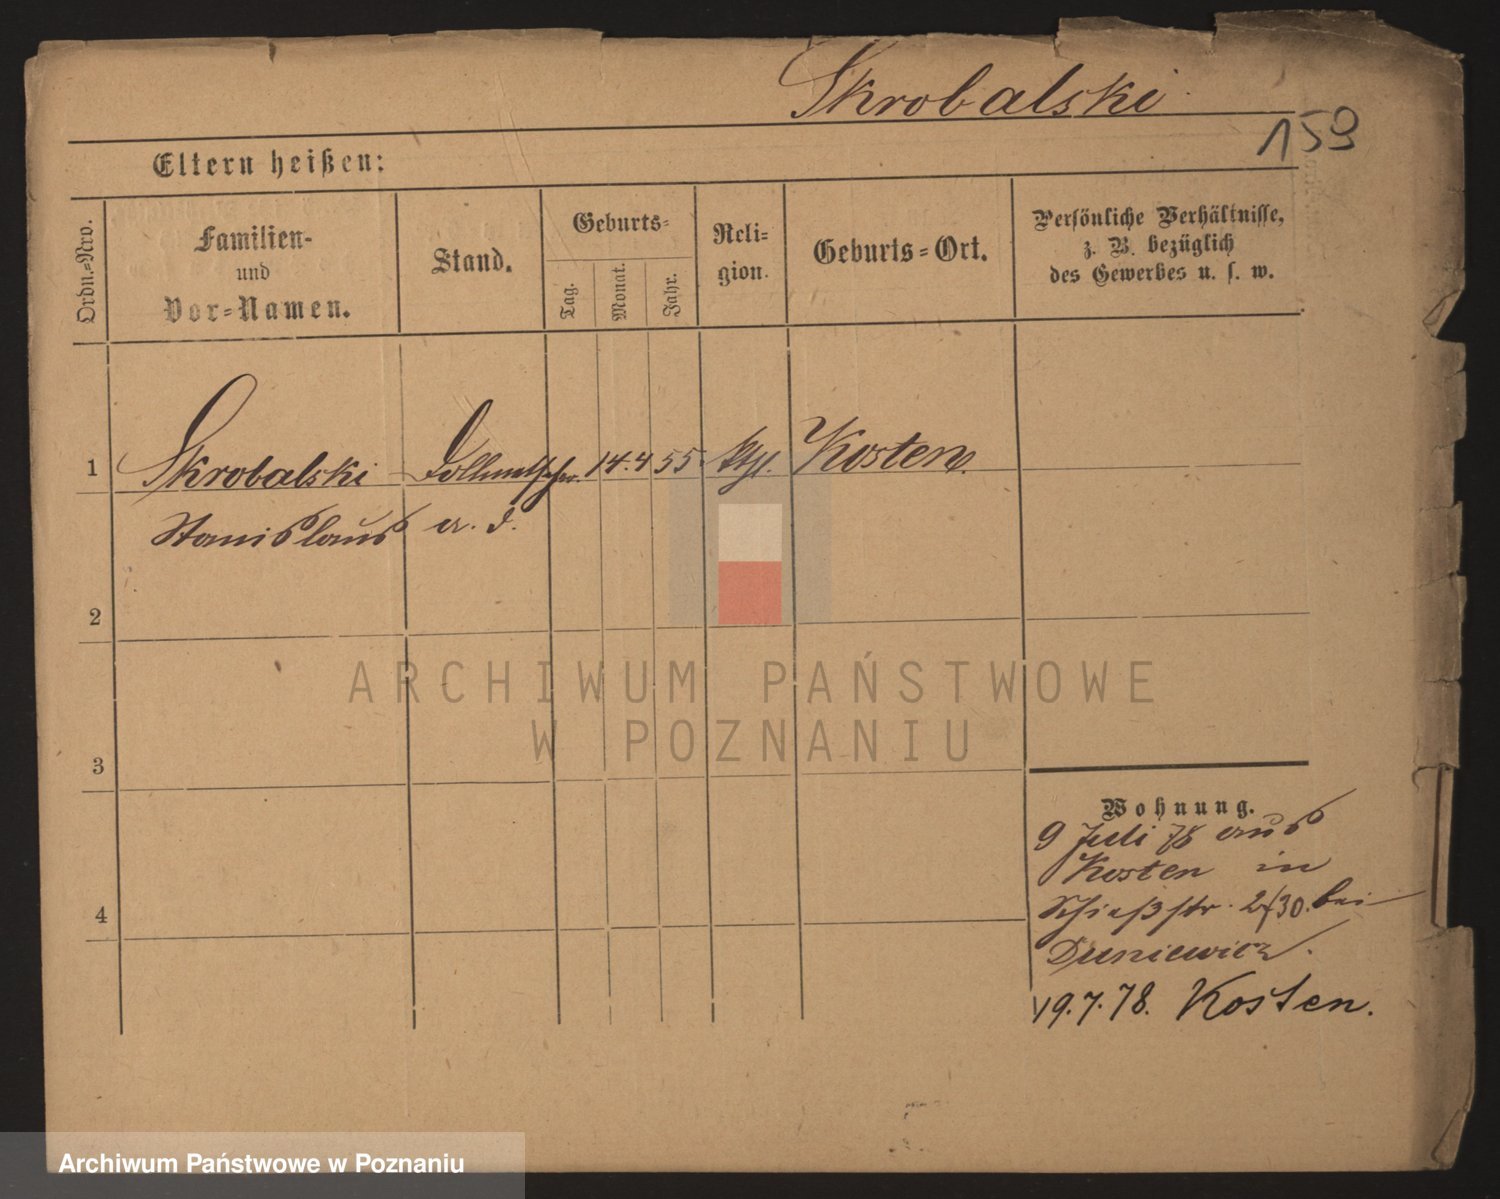 Skrobalski
159
Eltern heißen:
Ordn.=Nro.
Familien-
und
Vor=Namen.
Stand.
Geburts=
Tag.
Monat.
Jahr.
Reli=
gion.
Geburts=Ort.
Persönliche Verhältnisse,
z. B. bezüglich
des Gewerbes u. s. w.
1 Skrobalski Dollmetscher 14. 4 55 ktl. Kosten
Stanislaus a. d.
2
3
4
ARCHIWUM PAŃSTWOWE
W POZNANIU
Wohnung.
9 Juli 78 aus
Kosten in
Schießstr. 2/30. bei
Duniewicz.
19.7.78. Kosten.
Archiwum Państwowe w Poznaniu